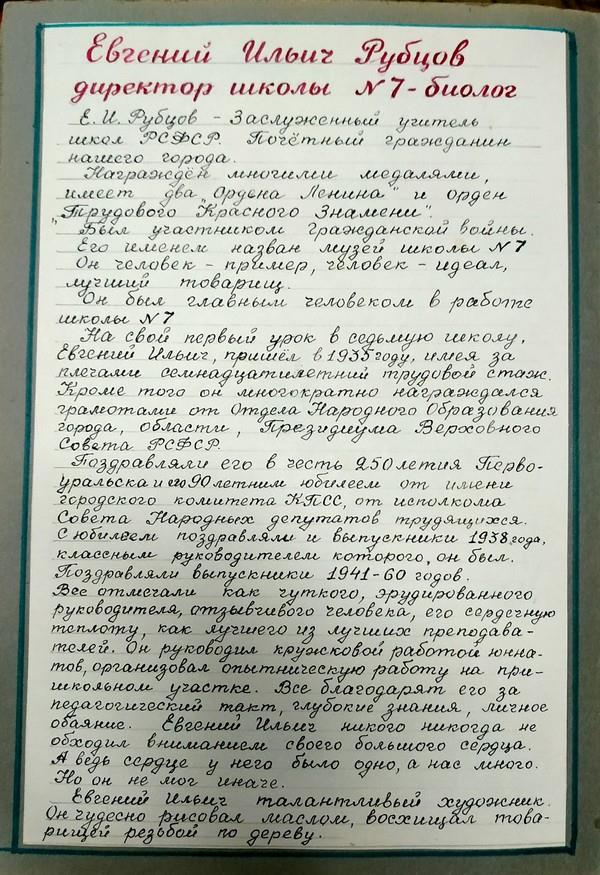 Евгений Ильич Рубцов
директор школы №7-биолог
Е.И.Рубцов - Заслуженный учитель
школ РСФСР. Почётный гражданин
нашего города.
Награждён многими медалями,
имеет два „Ордена Ленина" и орден
„Трудового Красного Знамени".
Был участником гражданской войны.
Его именем назван музей школы №7
Он человек - пример, человек - идеал,
лучший товарищ.
Он был главным человеком в работе
школы №7
На свой первый урок в седьмую школу,
Евгений Ильич, пришёл в 1935 году, имея за
плечами семнадцатилетний трудовой стаж.
Кроме того он многократно награждался
грамотами от Отдела Народного Образования
города, области, Президиума Верховного
Совета РСФСР.
Поздравляли его в честь 250летия Перво-
уральска и его 90летним юбилеем от имени
городского комитета КПСС, от исполкома
Совета Народных депутатов трудящихся.
С юбилеем поздравляли и выпускники 1938 года,
классным руководителем которого, он был.
Поздравляли выпускники 1941-60 годов.
Все отмечали как чуткого, эрудированного
руководителя, отзывчивого человека, его сердечную
теплоту, как лучшего из лучших преподава-
телей. Он руководил кружковой работой юнна-
тов, организовал опытническую работу на при-
школьном участке. Все благодарят его за
педагогический такт, глубокие знания, личное
обаяние. Евгений Ильич никого никогда не
обходил вниманием своего большого сердца.
А ведь сердце у него было одно, а нас много.
Но он не мог иначе.
Евгений Ильич талантливый художник.
Он чудесно рисовал маслом, восхищал това-
рищей резьбой по дереву.